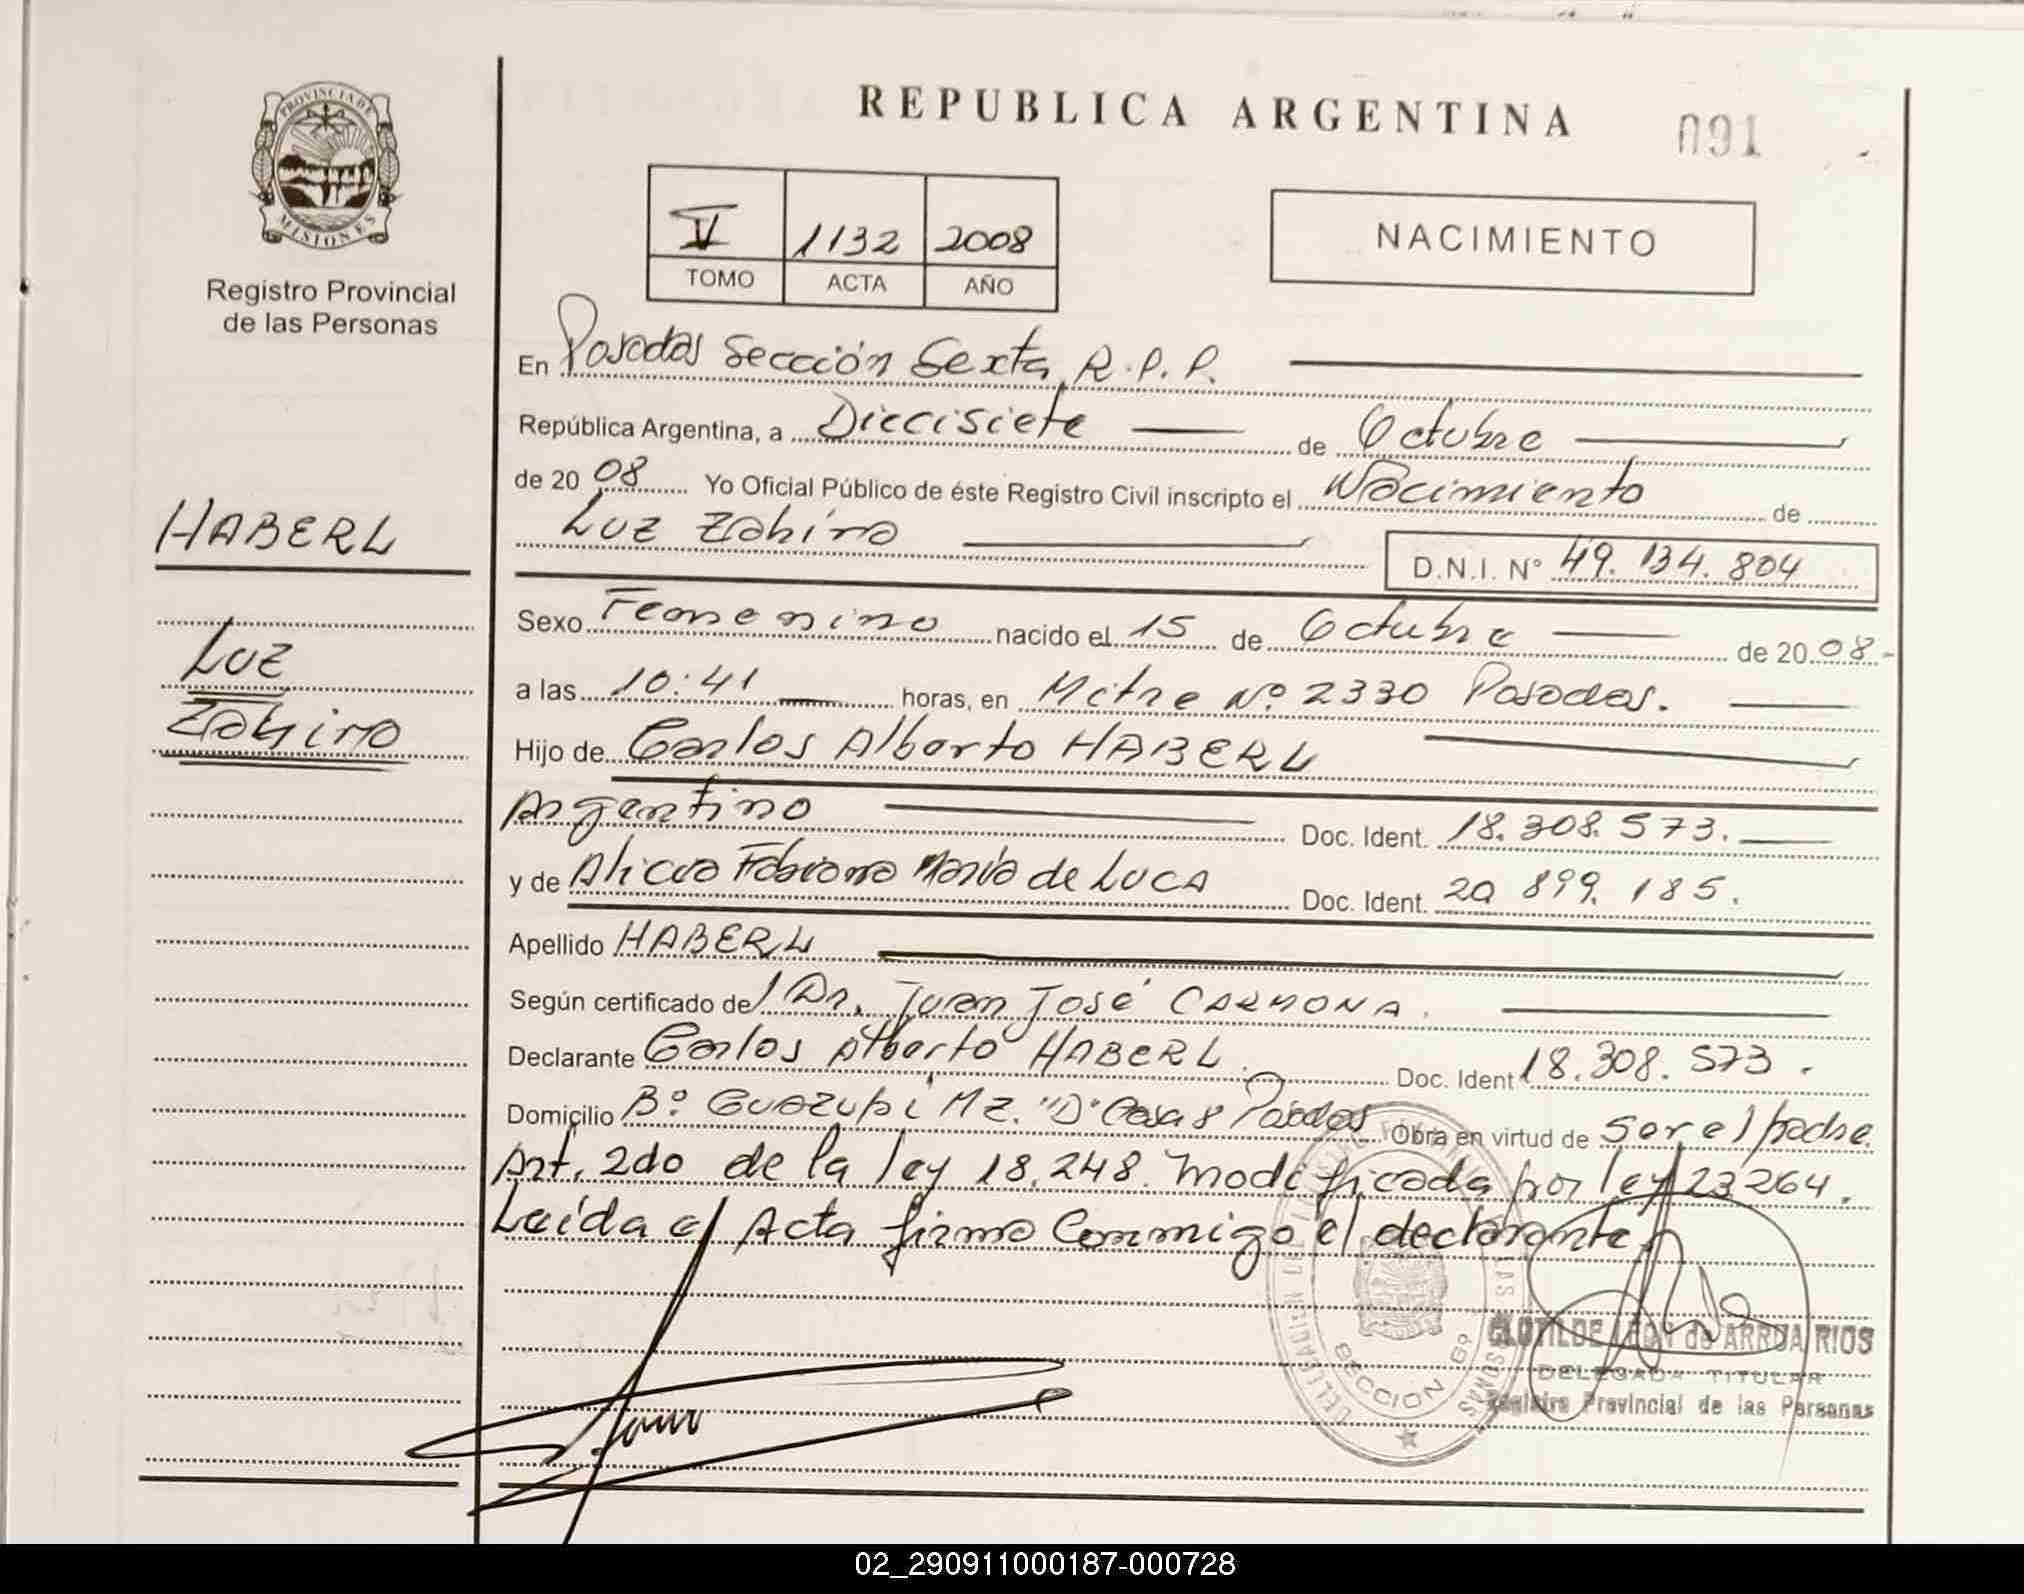 REPUBLICA ARGENTINA
091
PROVINCIA DE
MISIONES
Registro Provincial
de las Personas
V 1132 2008
TOMO ACTA AÑO
NACIMIENTO
En Posadas Sección Sexta R.P.P.
República Argentina, a Diecisiete de Octubre
de 20 08 Yo Oficial Público de éste Registro Civil inscripto el Nacimiento de
Luz Zahira
D.N.I. N° 49.134.804
HABERL
Luz
Zahira
Sexo Femenino nacido el 15 de Octubre de 20 08-
a las 10:41 horas, en Mitre Nº 2330 Posadas.
Hijo de Carlos Alberto HABERL
Argentino Doc. Ident. 18.308.573.
y de Alicia Fabiana María de LUCA Doc. Ident. 20 899.185.
Apellido HABERL
Según certificado de/ Dr. Juan José CARMONA.
Declarante Carlos Alberto HABERL. Doc. Ident 18.308.573.
Domicilio Bº Guazupi Mz. "D" Casa 8 Posadas Obra en virtud de ser el padre
Art. 2do de la ley 18.248. Modificada por ley 23264.
Leida el Acta firma Conmigo el declarante.
SECCION 6º
CLOTILDE LEON de ARRUA RIOS
DELEGADA TITULAR
Registro Provincial de las Personas
02_290911000187-000728